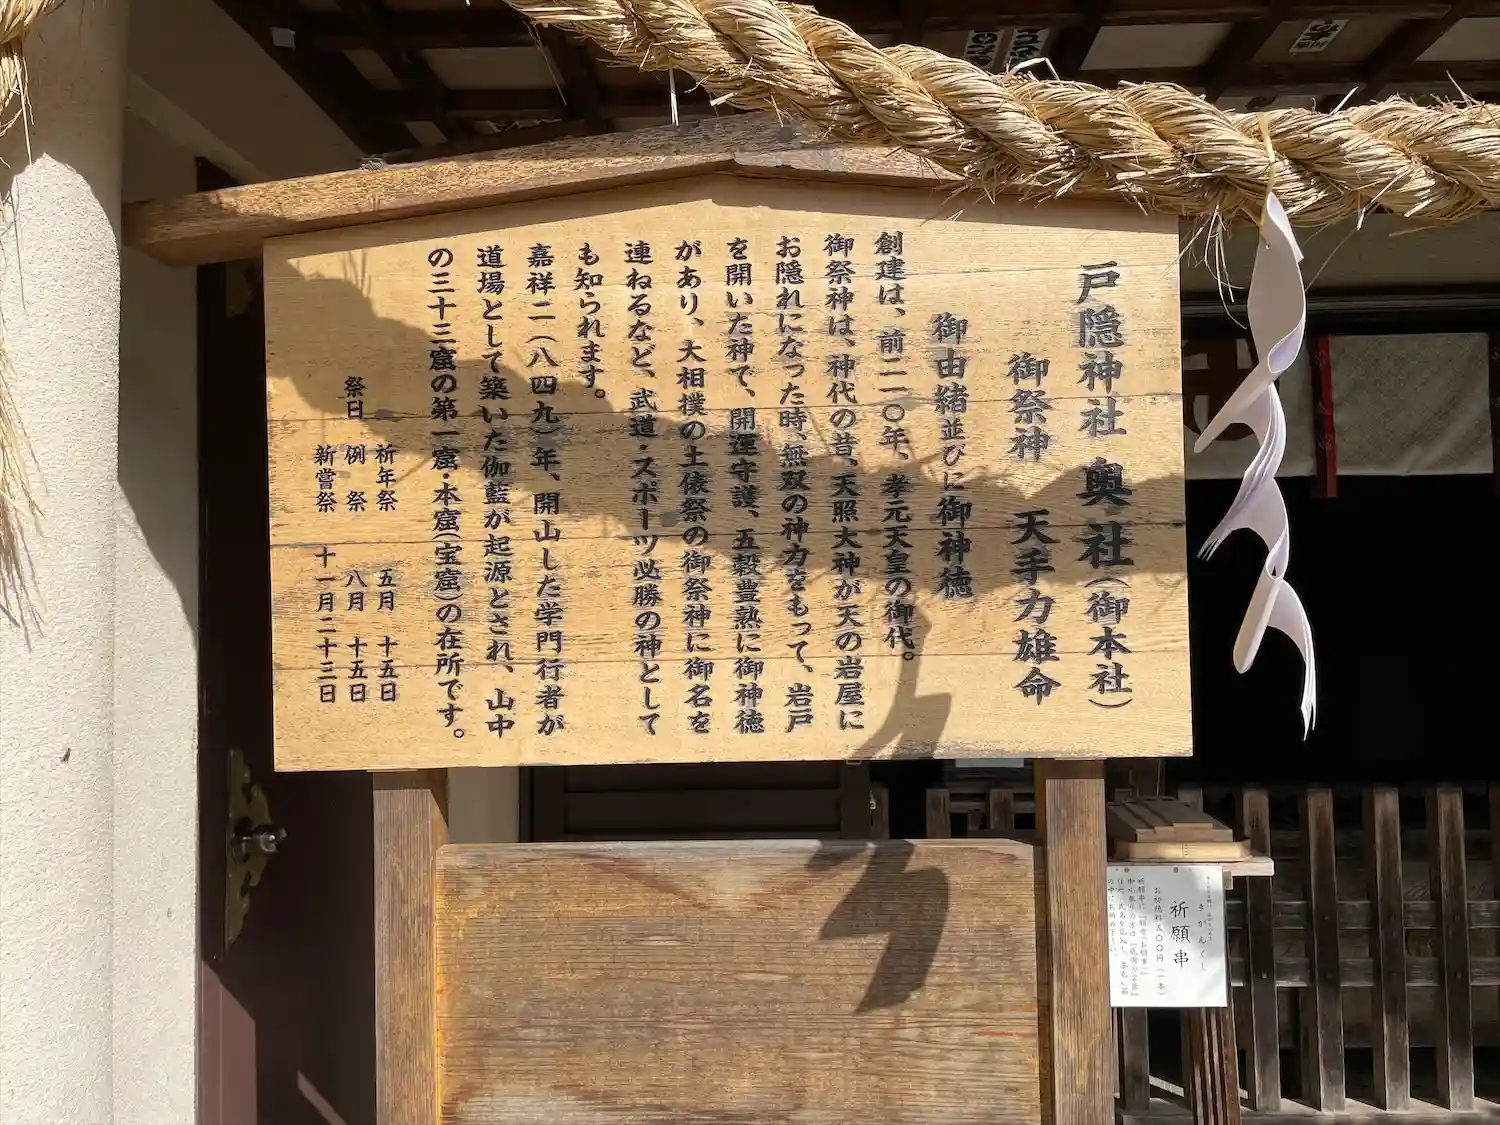 戸隠神社 奥社(御本社)
御祭神 天手力雄命
御由緒並びに御神徳
創建は、前二一〇年、孝元天皇の御代。
御祭神は、神代の昔、天照大神が天の岩屋に
お隠れになった時、無双の神力をもって、岩戸
を開いた神で、開運守護、五穀豊熟に御神徳
があり、大相撲の土俵祭の御祭神に御名を
連ねるなど、武道・スポーツ必勝の神として
も知られます。
嘉祥二(八四九)年、開山した学門行者が
道場として築いた伽藍が起源とされ、山中
の三十三窟の第一窟・本窟(宝窟)の在所です。
祈年祭 五月 十五日
祭日 例 祭 八月 十五日
新嘗祭 十一月二十三日
きがんくし
祈願串
お初穂料五〇〇円(一本)